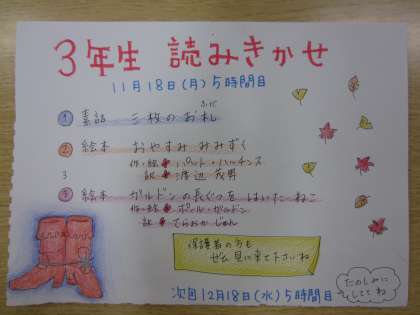 3年生 読みきかせ
11月18日(月)5時間目
ふだ
① 素話 三枚のお札
② 絵本 おやすみみみずく
作・絵 パット・ハッチンス
訳 渡辺茂男
3
④ 絵本 ガルドンの長ぐつをはいたねこ
作・絵 ポール・ガルドン
訳 てらおか じゅん
保護者の方も
ぜひ見に来て下さいね
たのしみに
しててね
次回12月18日(水)5時間目